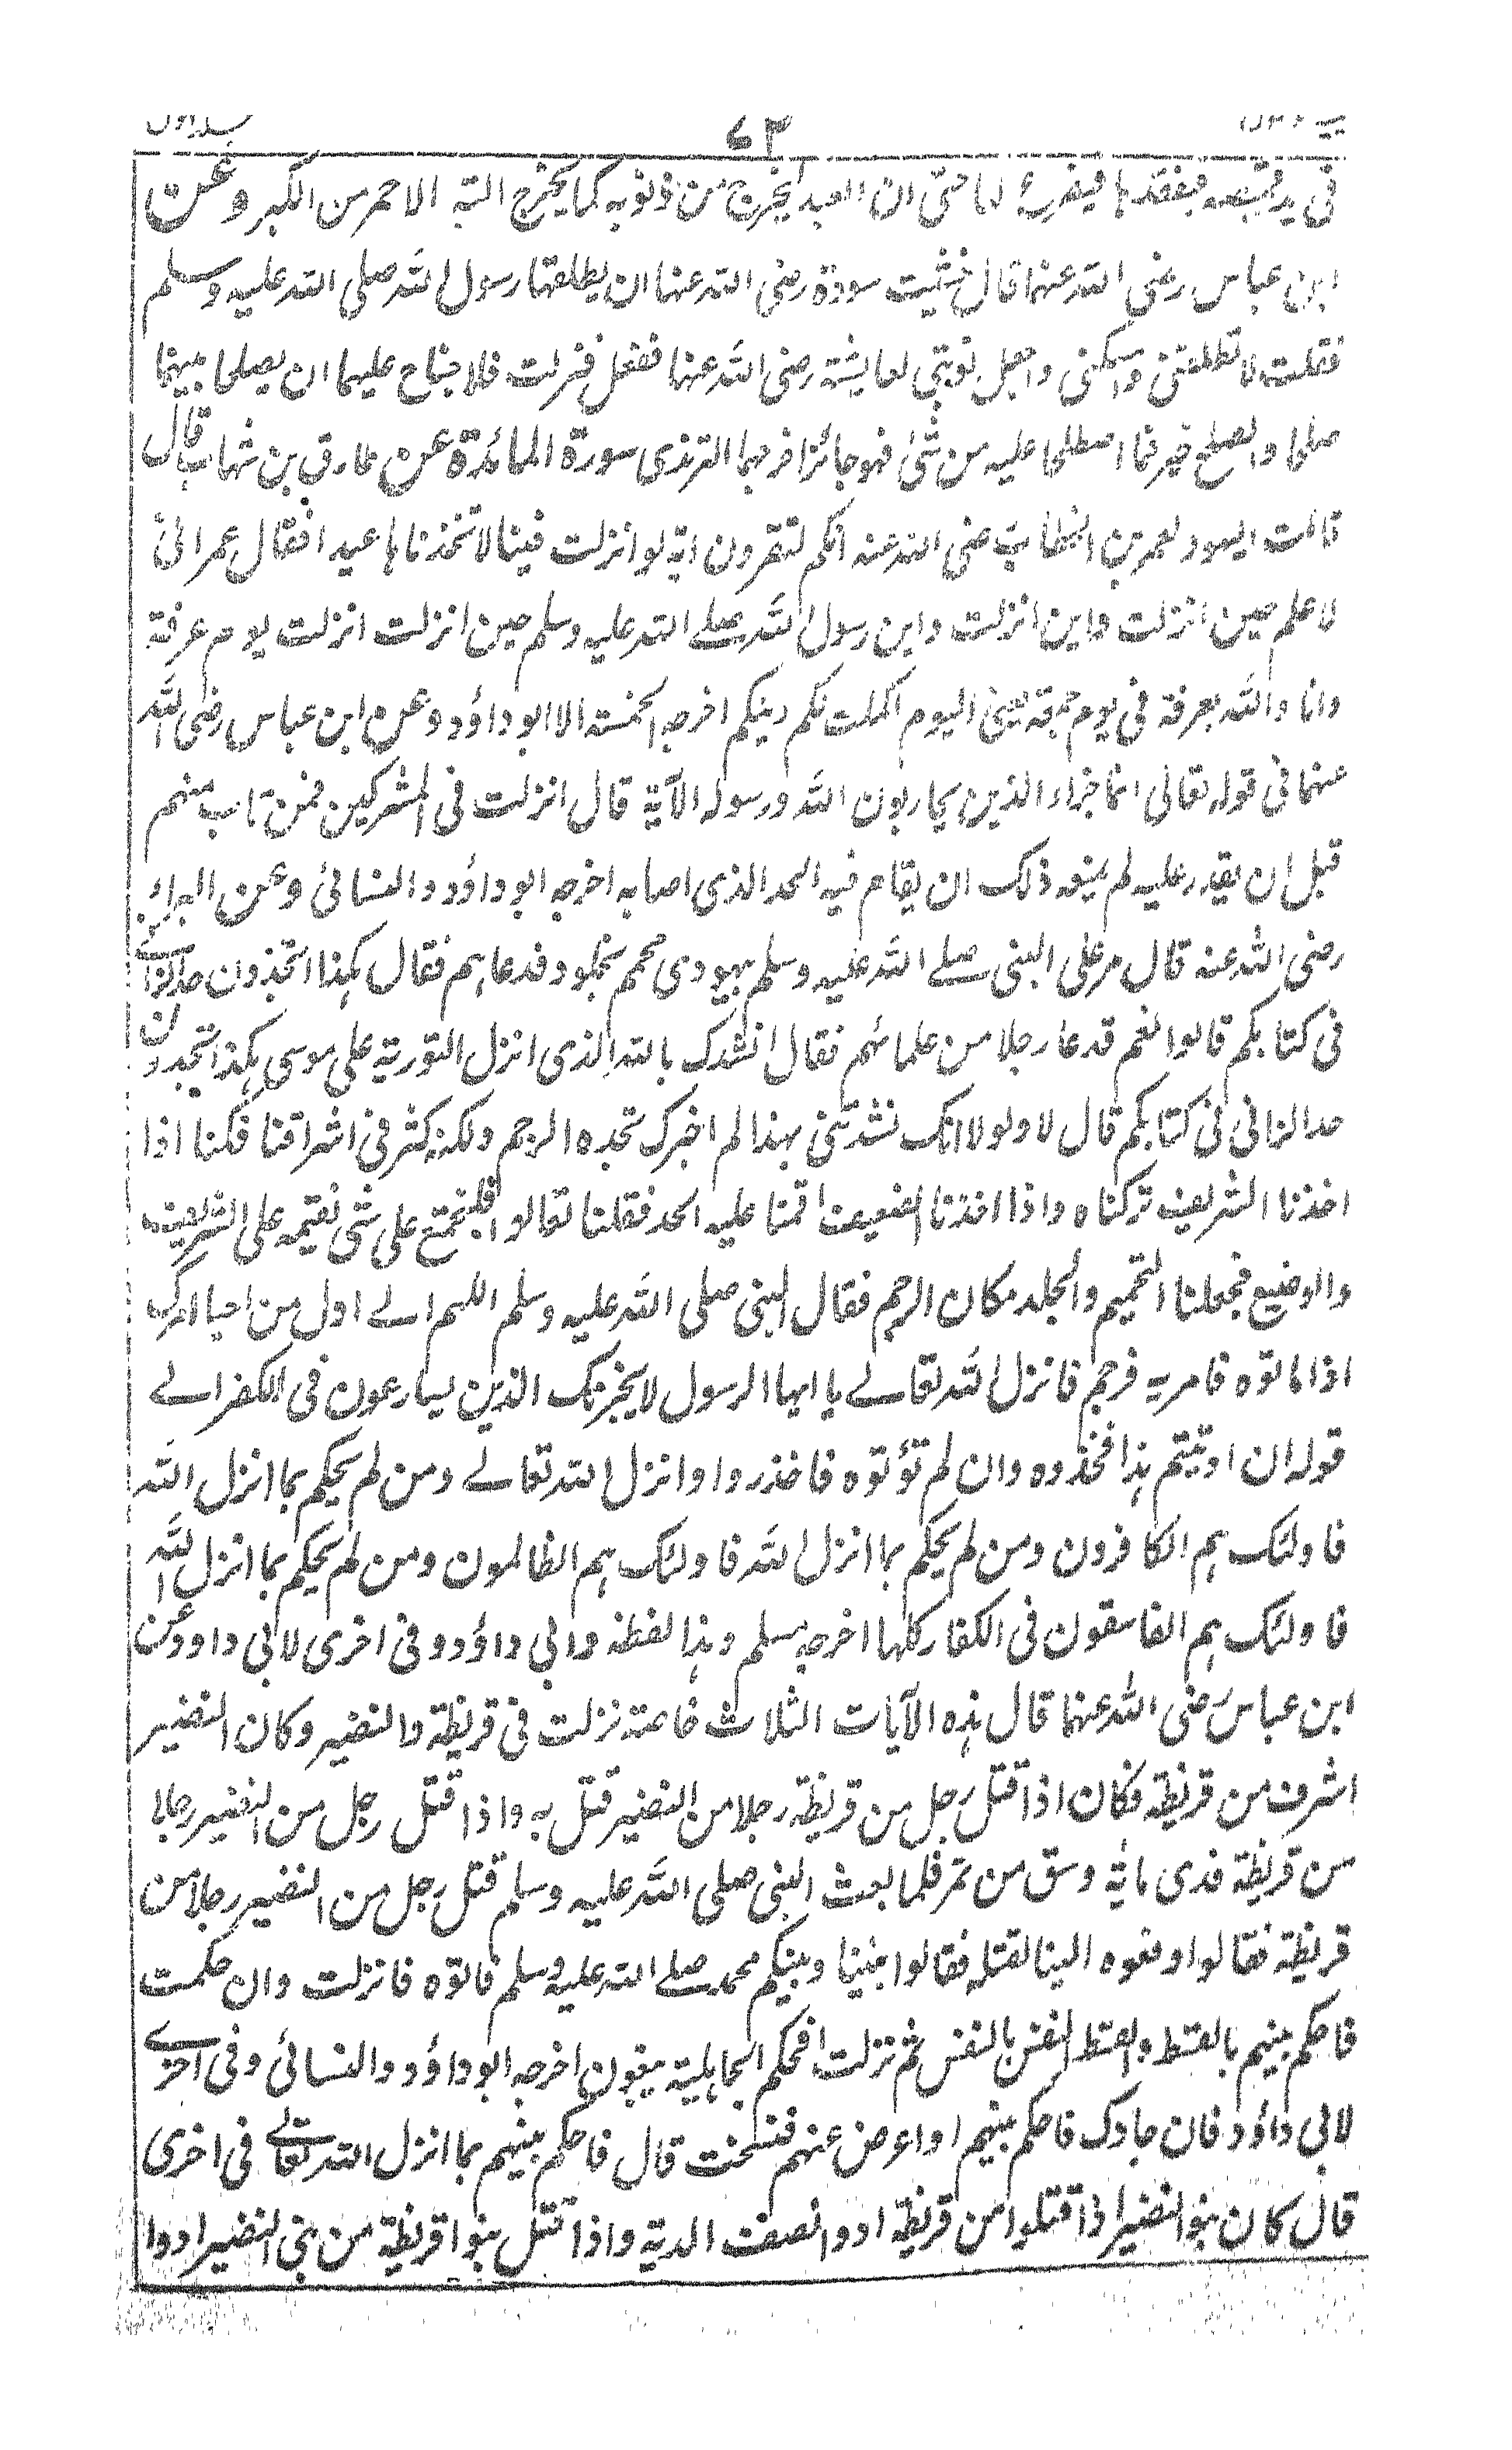 جلد اول ٧٣
فى يد قميصه فيفقدها فيفزع لها حتى ان العبد ليخرج من ذنوبه كما يخرج التبر الاحمر من الكير وعن
ابن عباس رضى الله عنهما قال خشيت سودة رضى الله عنها ان يطلقها رسول الله صلى الله عليه وسلم
فقلت لا تطلقنى وامسكنى واجعل نوبتى لعايشة رضى الله عنها ففعل فنزلت فلا جناح عليهما ان يصلحا بينهما
صلحا والصلح خير فما اصطلحا عليه من شئ فهو جائز اخرجهما الترمذى سورة المائدة عن طارق بن شهاب قال
قالت اليهود لعمر بن الخطاب رضى الله عنه انكم لتقرون اية لو انزلت فينا لاتخذناها عيدا فقال عمر انى
لاعلم حين انزلت واين انزلت واين رسول الله صلے الله عليه وسلم حين انزلت انزلت يوم عرفة
وانا والله بعرفة فى يوم جمعة يعنى اليوم اكملت لكم دينكم اخرجه الخمسة الا ابو داؤد وعن ابن عباس رضى الله
عنهما فى قوله تعالى انما جزاء الذين يحاربون الله ورسوله الآية قال انزلت فى المشركين فمن تاب منهم
قبل ان يقدر عليه لم يمنعه ذلك ان يقام فيه الحد الذى اصابه اخرجه ابو داؤد والنسائى وعن البراء
رضى الله عنه قال مر على النبى صلے الله عليه وسلم بيهودى محمم مجلود فدعاهم فقال هكذا تجدون حد الزانے
فى كتابكم قالوا نعم فدعا رجلا من علمائهم فقال انشدك بالله الذى انزل التورية على موسى هكذا تجدون
حد الزانى فى كتابكم قال لا ولولا انك نشدتنى بهذا لم اخبرك تجده الرجم ولكنه كثر فى اشرافنا فكنا اذا
اخذنا الشريف تركناه واذا اخذنا الضعيف اقمنا عليه الحد فقلنا تعالوا فلنجتمع على شئ نقيمه على الشريف
والوضيع فجعلنا التحميم والجلد مكان الرجم فقال النبى صلى الله عليه وسلم اللهم انے اول من احيا امرك
اذ اماتوه فامر به فرجم فانزل الله تعالے يا ايها الرسول لا يحزنك الذين يسارعون فى الكفر الے
قوله ان اوتيتم هذا فخذوه وان لم تؤتوه فاحذروا وانزل الله تعالے ومن لم يحكم بما انزل الله
فاولئك هم الكافرون ومن لم يحكم بما انزل الله فاولئك هم الظالمون ومن لم يحكم بما انزل الله
فاولئك هم الفاسقون فى الكفار كلها اخرجه مسلم وهذا لفظه وابى داؤد وفى اخرى لابى داود وعن
ابن عباس رضى الله عنهما قال هذه الآيات الثلاث خاصة نزلت فى قريظة والنضير وكان النضير
اشرف من قريظة فكان اذا قتل رجل من قريظة رجلا من النضير قتل به واذا قتل رجل من النضير رجالا
من قريظة فدى مائة وسق من تمر فلما بعث النبى صلى الله عليه وسلم قتل رجل من النضير رجلا من
قريظة فقالوا ادفعوه الينا لقتله فقالوا بيننا وبينكم محمد صلے الله عليه وسلم فاتوه فانزلت وان حكمت
فاحكم بينهم بالقسط والقسط النفس بالنفس ثم نزلت افحكم الجاهلية يبغون اخرجه ابو داؤد والنسائى وفى اخرے
لابى داؤد فان جاؤك فاحكم بينهم او اعرض عنهم فنسخت قال فاحكم بينهم بما انزل الله تعالے فى اخرى
قال كان بنو النضير اذا قتلوا من قريظة ادوا نصف الدية واذا قتل بنو اقريظة من بنى النضير ادوا